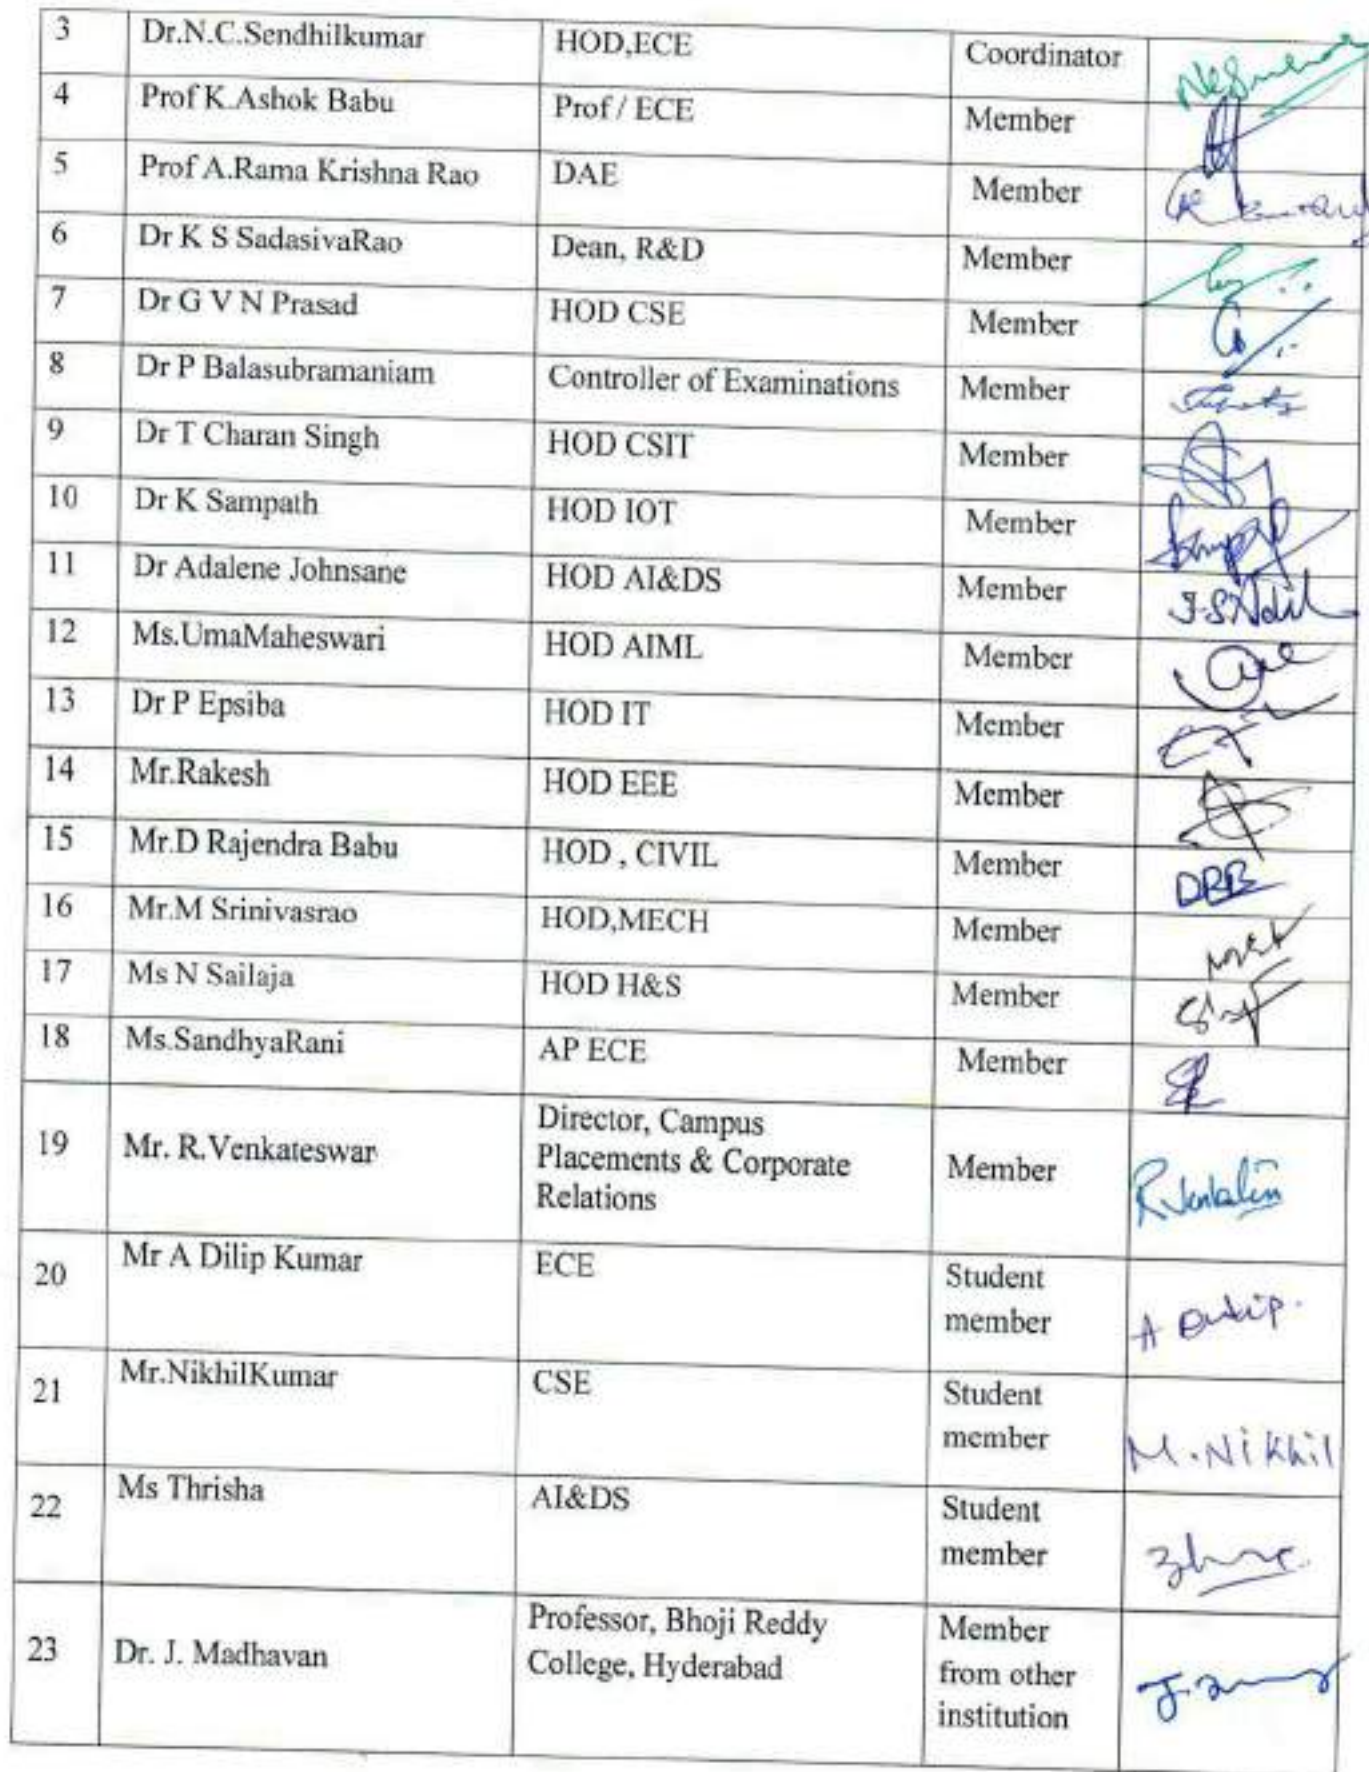 3 Dr.N.C.Sendhilkumar HOD,ECE Coordinator
4 Prof K.Ashok Babu Prof / ECE Member
5 Prof A.Rama Krishna Rao DAE Member
6 Dr K S SadasivaRao Dean, R&D Member
7 Dr G V N Prasad HOD CSE Member
8 Dr P Balasubramaniam Controller of Examinations Member
9 Dr T Charan Singh HOD CSIT Member
10 Dr K Sampath HOD IOT Member
11 Dr Adalene Johnsane HOD AI&DS Member
12 Ms.UmaMaheswari HOD AIML Member
13 Dr P Epsiba HOD IT Member
14 Mr.Rakesh HOD EEE Member
15 Mr.D Rajendra Babu HOD , CIVIL Member DRB
16 Mr.M Srinivasrao HOD,MECH Member
17 Ms N Sailaja HOD H&S Member
18 Ms.SandhyaRani AP ECE Member
19 Mr. R.Venkateswar Director, Campus
Placements & Corporate Member
Relations
20 Mr A Dilip Kumar ECE Student
member A Dilip.
21 Mr.NikhilKumar CSE Student
member M.Nikhil
22 Ms Thrisha AI&DS Student
member
23 Dr. J. Madhavan Professor, Bhoji Reddy Member
College, Hyderabad from other
institution